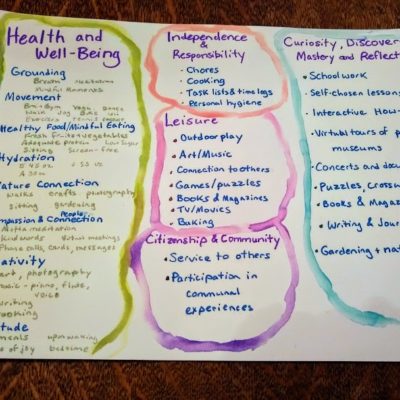 Health and
Well-Being
Grounding
Breath Meditations
Mindful Moments
Movement
BrainGym Yoga Dance
Walk Jog Bike
Exercises Tennis soccer
Healthy Food/Mindful Eating
Fresh Fruits + vegetables
Adequate protein Low Sugar
Sitting Screen-free
Hydration
Nature Connection
walks crafts photography
sitting gardening
Peoples
Compassion & Connection
Metta meditation
kind words
Phone calls, cards, messages
art, photography
music - piano, flute,
writing
upon waking
of joy bedtime
Independence
&
Responsibility
• Chores
• Cooking
• Task lists & time logs
• Personal hygiene
Leisure
• Outdoor play
• Art/Music
• Connection to others
• Games/puzzles
• Books & Magazines
• TV/Movies
• Baking
Citizenship & Community
• Service to others
• Participation in
communal
experiences
Curiosity, Discover
Mastery and Reflect
• Schoolwork
• Self-chosen lesson
• Interactive How
• Virtual tours of p
museums
• Concerts and doc
• Puzzles, Crossw
• Books & Magaz
• Writing & Jour
• Gardening + nat